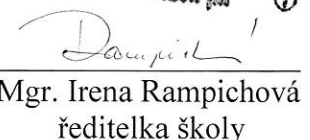 Mgr. Irena Rampichová
ředitelka školy